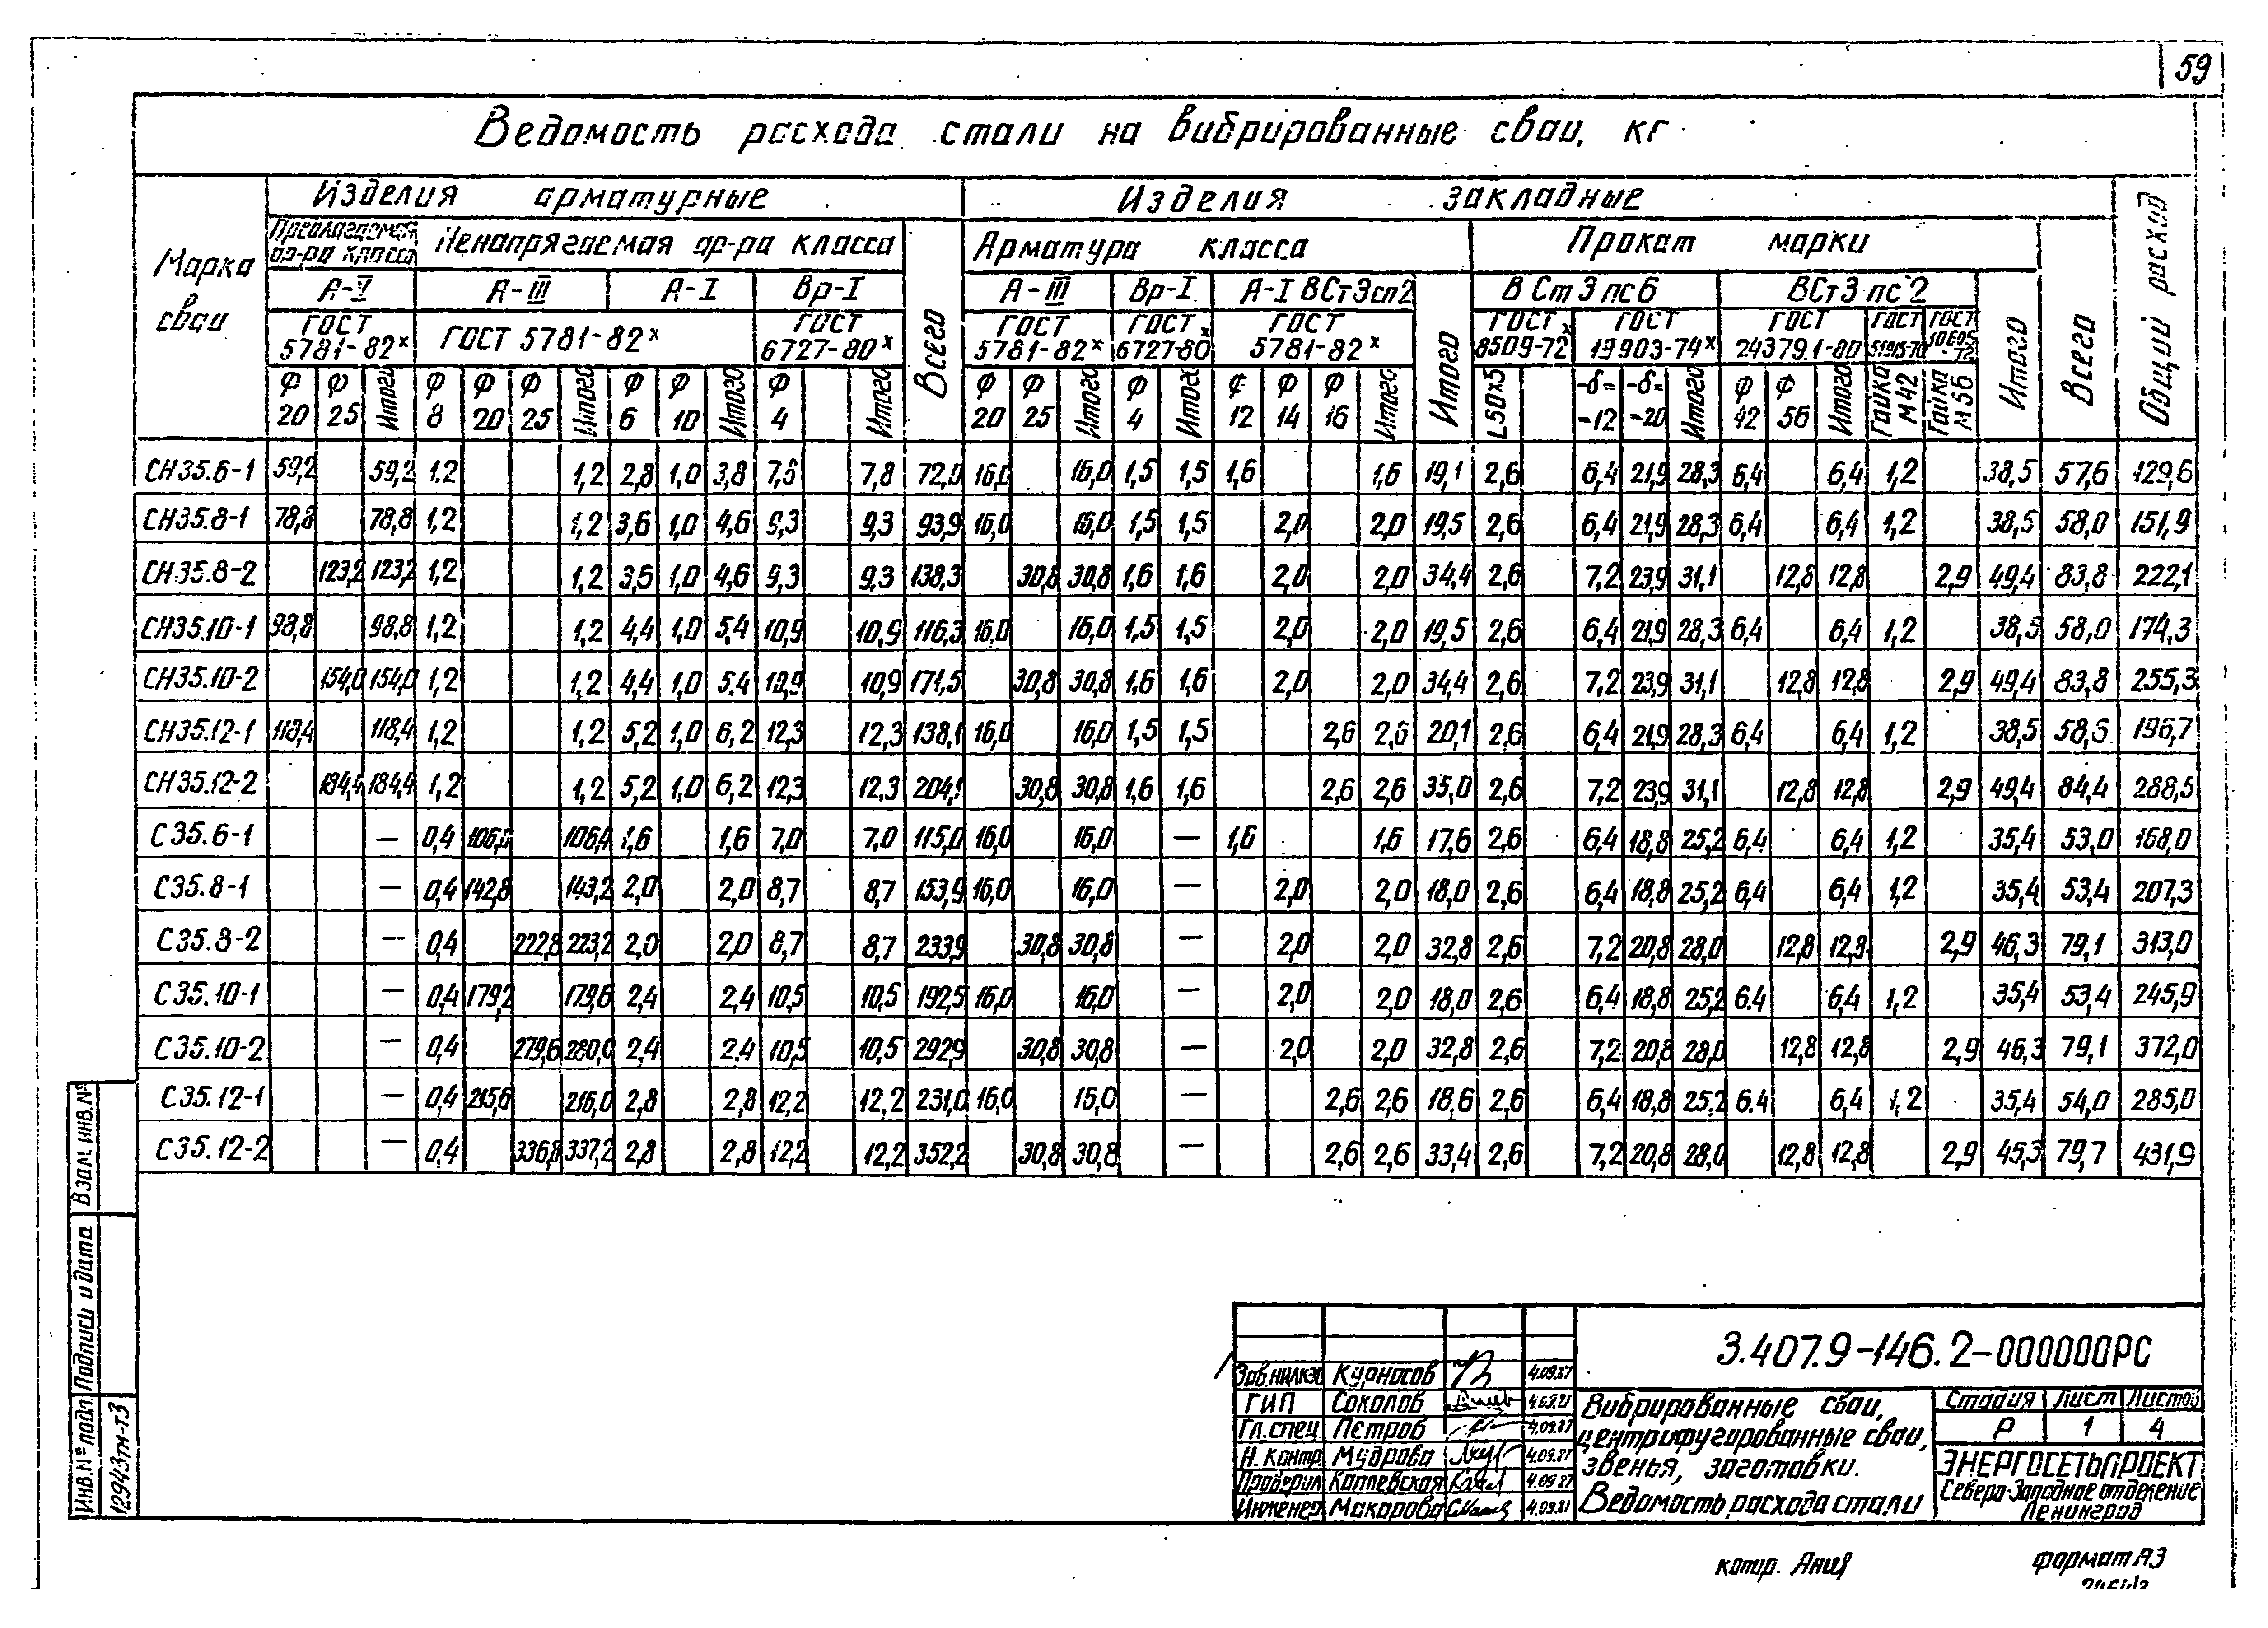 59
Ведомость расхода стали на вибрированные сваи, кг
Марка сваи
Изделия арматурные
Изделия закладные
Общий расход
ар-ра класса
Ненапрягаемая ар-ра класса
Всего
Арматура класса
Прокат марки
Всего
А-V А-III А-I Вр-I
А-III Вр-I А-I ВСт3сп2 Итого
ВСт3пс6 ВСт3пс2 Итого
ГОСТ 5781-82х ГОСТ 5781-82х ГОСТ 6727-80х
ГОСТ 5781-82х ГОСТ 6727-80х ГОСТ 5781-82х
ГОСТ 8509-72х ГОСТ 19903-74х ГОСТ 24379.1-80 ГОСТ ГОСТ 10605-72
Ф20 Ф25 Итого Ф8 Ф20 Ф25 Итого Ф6 Ф10 Итого Ф4 Итого
Ф20 Ф25 Итого Ф4 Итого Ф12 Ф14 Ф16 Итого
L50х5 -δ=-12 -δ=-20 Итого Ф42 Ф56 Итого Гайка М42 Гайка М56
СН35.6-1 59,2 59,2 1,2 1,2 2,8 1,0 3,8 7,8 7,8 72,0 16,0 16,0 1,5 1,5 1,6 1,6 19,1 2,6 6,4 21,9 28,3 6,4 6,4 1,2 38,5 57,6 129,6
СН35.8-1 78,8 78,8 1,2 1,2 3,6 1,0 4,6 9,3 9,3 93,9 16,0 16,0 1,5 1,5 2,0 2,0 19,5 2,6 6,4 21,9 28,3 6,4 6,4 1,2 38,5 58,0 151,9
СН35.8-2 123,2 123,2 1,2 1,2 3,6 1,0 4,6 9,3 9,3 138,3 30,8 30,8 1,6 1,6 2,0 2,0 34,4 2,6 7,2 23,9 31,1 12,8 12,8 2,9 49,4 83,8 222,1
СН35.10-1 98,8 98,8 1,2 1,2 4,4 1,0 5,4 10,9 10,9 116,3 16,0 16,0 1,5 1,5 2,0 2,0 19,5 2,6 6,4 21,9 28,3 6,4 6,4 1,2 38,5 58,0 174,3
СН35.10-2 154,0 154,0 1,2 1,2 4,4 1,0 5,4 10,9 10,9 171,5 30,8 30,8 1,6 1,6 2,0 2,0 34,4 2,6 7,2 23,9 31,1 12,8 12,8 2,9 49,4 83,8 255,3
СН35.12-1 118,4 118,4 1,2 1,2 5,2 1,0 6,2 12,3 12,3 138,1 16,0 16,0 1,5 1,5 2,6 2,6 20,1 2,6 6,4 21,9 28,3 6,4 6,4 1,2 38,5 58,6 196,7
СН35.12-2 184,4 184,4 1,2 1,2 5,2 1,0 6,2 12,3 12,3 204,1 30,8 30,8 1,6 1,6 2,6 2,6 35,0 2,6 7,2 23,9 31,1 12,8 12,8 2,9 49,4 84,4 288,5
С35.6-1 — 0,4 106,0 106,4 1,6 1,6 7,0 7,0 115,0 16,0 16,0 — 1,6 1,6 17,6 2,6 6,4 18,8 25,2 6,4 6,4 1,2 35,4 53,0 168,0
С35.8-1 — 0,4 142,8 143,2 2,0 2,0 8,7 8,7 153,9 16,0 16,0 — 2,0 2,0 18,0 2,6 6,4 18,8 25,2 6,4 6,4 1,2 35,4 53,4 207,3
С35.8-2 — 0,4 222,8 223,2 2,0 2,0 8,7 8,7 233,9 30,8 30,8 — 2,0 2,0 32,8 2,6 7,2 20,8 28,0 12,8 12,8 2,9 46,3 79,1 313,0
С35.10-1 — 0,4 179,2 179,6 2,4 2,4 10,5 10,5 192,5 16,0 16,0 — 2,0 2,0 18,0 2,6 6,4 18,8 25,2 6,4 6,4 1,2 35,4 53,4 245,9
С35.10-2 — 0,4 279,6 280,0 2,4 2,4 10,5 10,5 292,9 30,8 30,8 — 2,0 2,0 32,8 2,6 7,2 20,8 28,0 12,8 12,8 2,9 46,3 79,1 372,0
С35.12-1 — 0,4 215,6 216,0 2,8 2,8 12,2 12,2 231,0 16,0 16,0 — 2,6 2,6 18,6 2,6 6,4 18,8 25,2 6,4 6,4 1,2 35,4 54,0 285,0
С35.12-2 — 0,4 336,8 337,2 2,8 2,8 12,2 12,2 352,2 30,8 30,8 — 2,6 2,6 33,4 2,6 7,2 20,8 28,0 12,8 12,8 2,9 46,3 79,7 431,9
Взам. инв. №
Подпись и дата
Инв. № подл.
12943тм-т3
Курносов 4.09.87
ГИП Соколов
Гл. спец. Петров 4.09.87
Н. контр. Мудрова 4.09.87
Проверил Каплевская 4.09.87
Инженер Макарова 4.09.87
3.407.9-146.2-000000РС
Вибрированные сваи,
центрифугированные сваи,
звенья, заготовки.
Ведомость расхода стали
Стадия Лист Листов
Р 1 4
ЭНЕРГОСЕТЬПРОЕКТ
Северо-Западное отделение
Ленинград
копир. Анив
формат А3